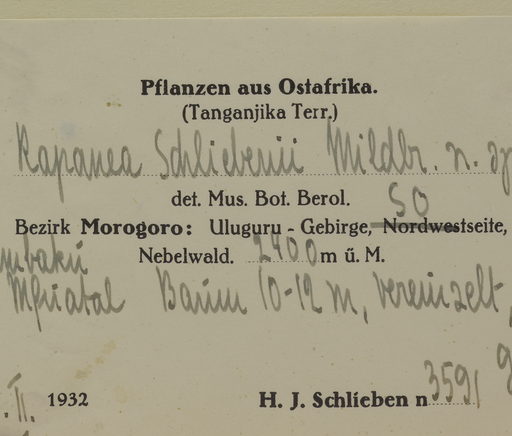 Pflanzen aus Ostafrika.
(Tanganjika Terr.)
Rapanea Schliebenii Mildbr. n. sp
det. Mus. Bot. Berol.
SO
Bezirk Morogoro: Uluguru - Gebirge, Nordwestseite,
Nebelwald. 2400 m ü. M.
Baum 10-12 m, vereinzelt,
.II. 1932 H. J. Schlieben n 3591